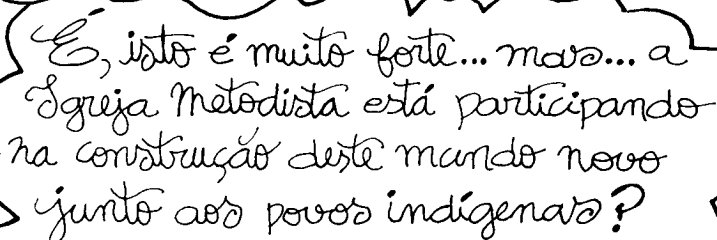 É, isto é muito forte... mas... a
Igreja Metodista está participando
na construção deste mundo novo
junto aos povos indígenas?